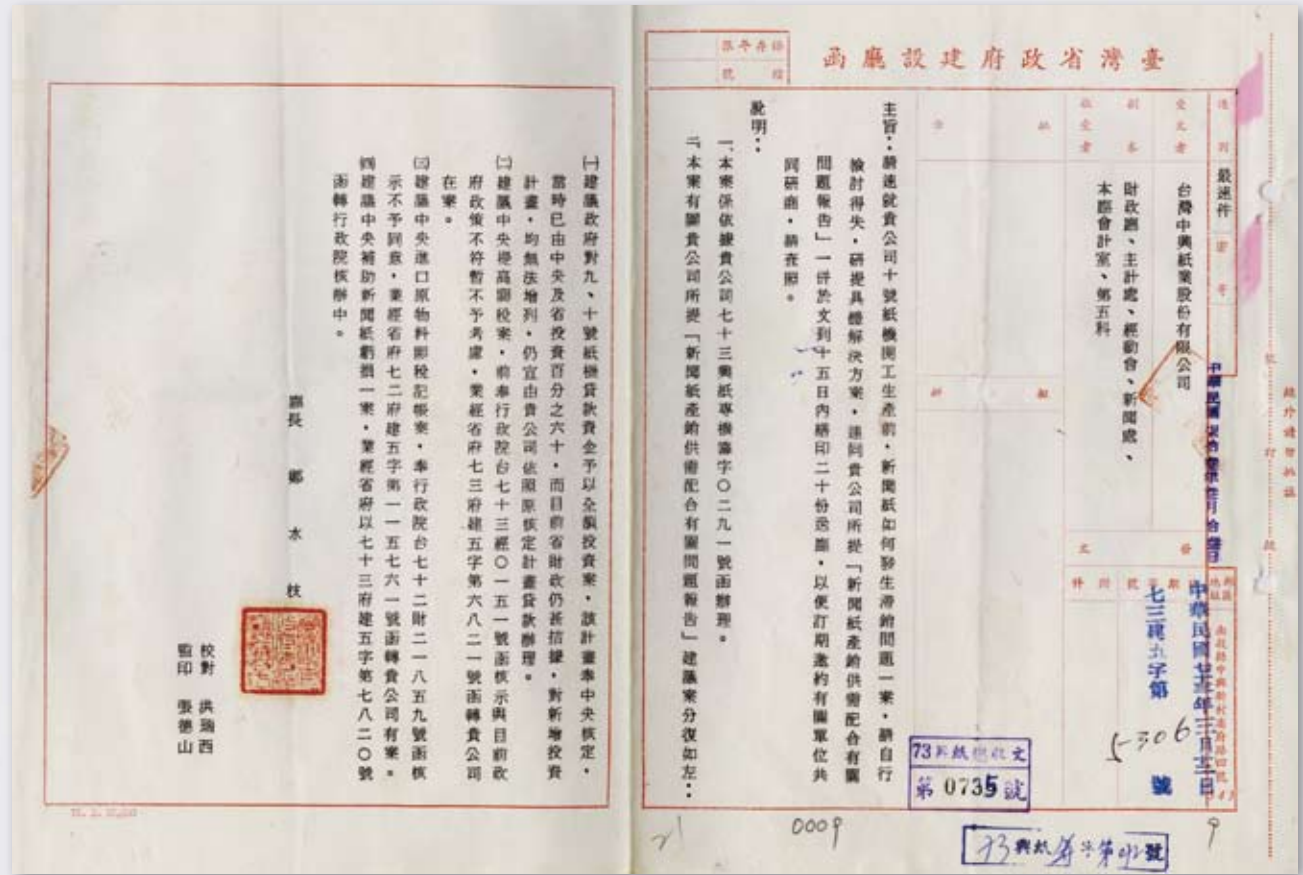 臺灣省政府建設廳函
保存年限
檔號
速別
最速件
密等
受文者
台灣中興紙業股份有限公司
副本
收受者
財政廳、主計處、經動會、新聞處、
本廳會計室、第五科
批
示
擬
辦
發
文
附件
字號
日期
中華民國七十三年三月
七三建五字第
5306
號
主旨：請速就貴公司十號紙機開工生產前，新聞紙如何發生滯銷問題一案，請自行
檢討得失，研提具體解決方案，連同貴公司所提「新聞紙產銷供需配合有關
問題報告」一併於文到十五日內繕印二十份送廳，以便訂期邀約有關單位共
同研商，請查照。
說明：
一、本案係依據貴公司七十三興紙專機籌字〇二九一號函辦理。
二、本案有關貴公司所提「新聞紙產銷供需配合有關問題報告」建議案分復如左：
73興紙總收文
第 0735 號
0009
9
73興紙
㈠建議政府對九、十號紙機貸款資金予以全額投資案，該計畫奉中央核定，
當時已由中央及省投資百分之六十，而目前省財政仍甚拮据，對新增投資
計畫，均無法增列，仍宜由貴公司依照原核定計畫貸款辦理。
㈡建議中央提高關稅案，前奉行政院台七十三經〇一五一號函核示與目前政
府政策不符暫不予考慮，業經省府七三府建五字第六八二一號函轉貴公司
在案。
㈢建議中央進口原物料關稅記帳案，奉行政院台七十二財二一八五九號函核
示不予同意，業經省府七二府建五字第一一五七六一號函轉貴公司有案。
㈣建議中央補助新聞紙虧損一案，業經省府以七十三府建五字第七八二〇號
函轉行政院核辦中。
廳長 鄭水枝
校對 洪瑞西
監印 張德山